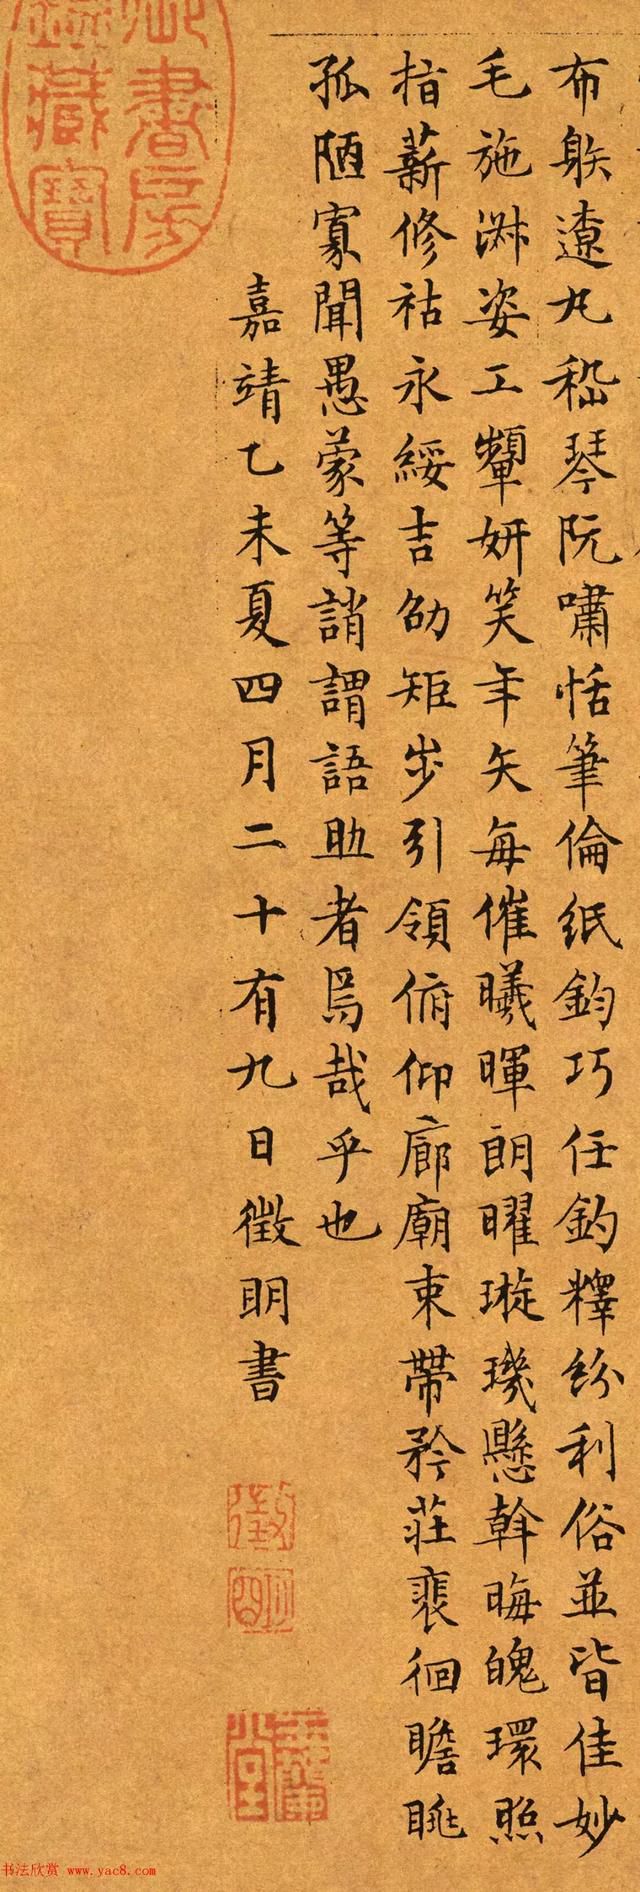 布躲遼丸嵇琴阮嘯恬筆倫紙鈞巧任釣釋紛利俗並皆佳妙
毛施淑姿工顰妍笑年矢每催曦暉朗曜璇璣懸斡晦魄環照
指薪修祜永綏吉劭矩步引領俯仰廊廟束帶矜莊裵徊瞻眺
孤陋寡聞愚蒙等誚謂語助者焉哉乎也
嘉靖乙未夏四月二十有九日徵明書
御書房
鑑藏寶
徵
明
玉蘭
堂
书法欣赏 www.yac8.com